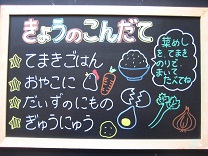 きょうのこんだて
てまきごはん
おやこに
だいずのにもの
ぎゅうにゅう
菜めし
を てまき
のりで
まいて
たべてね